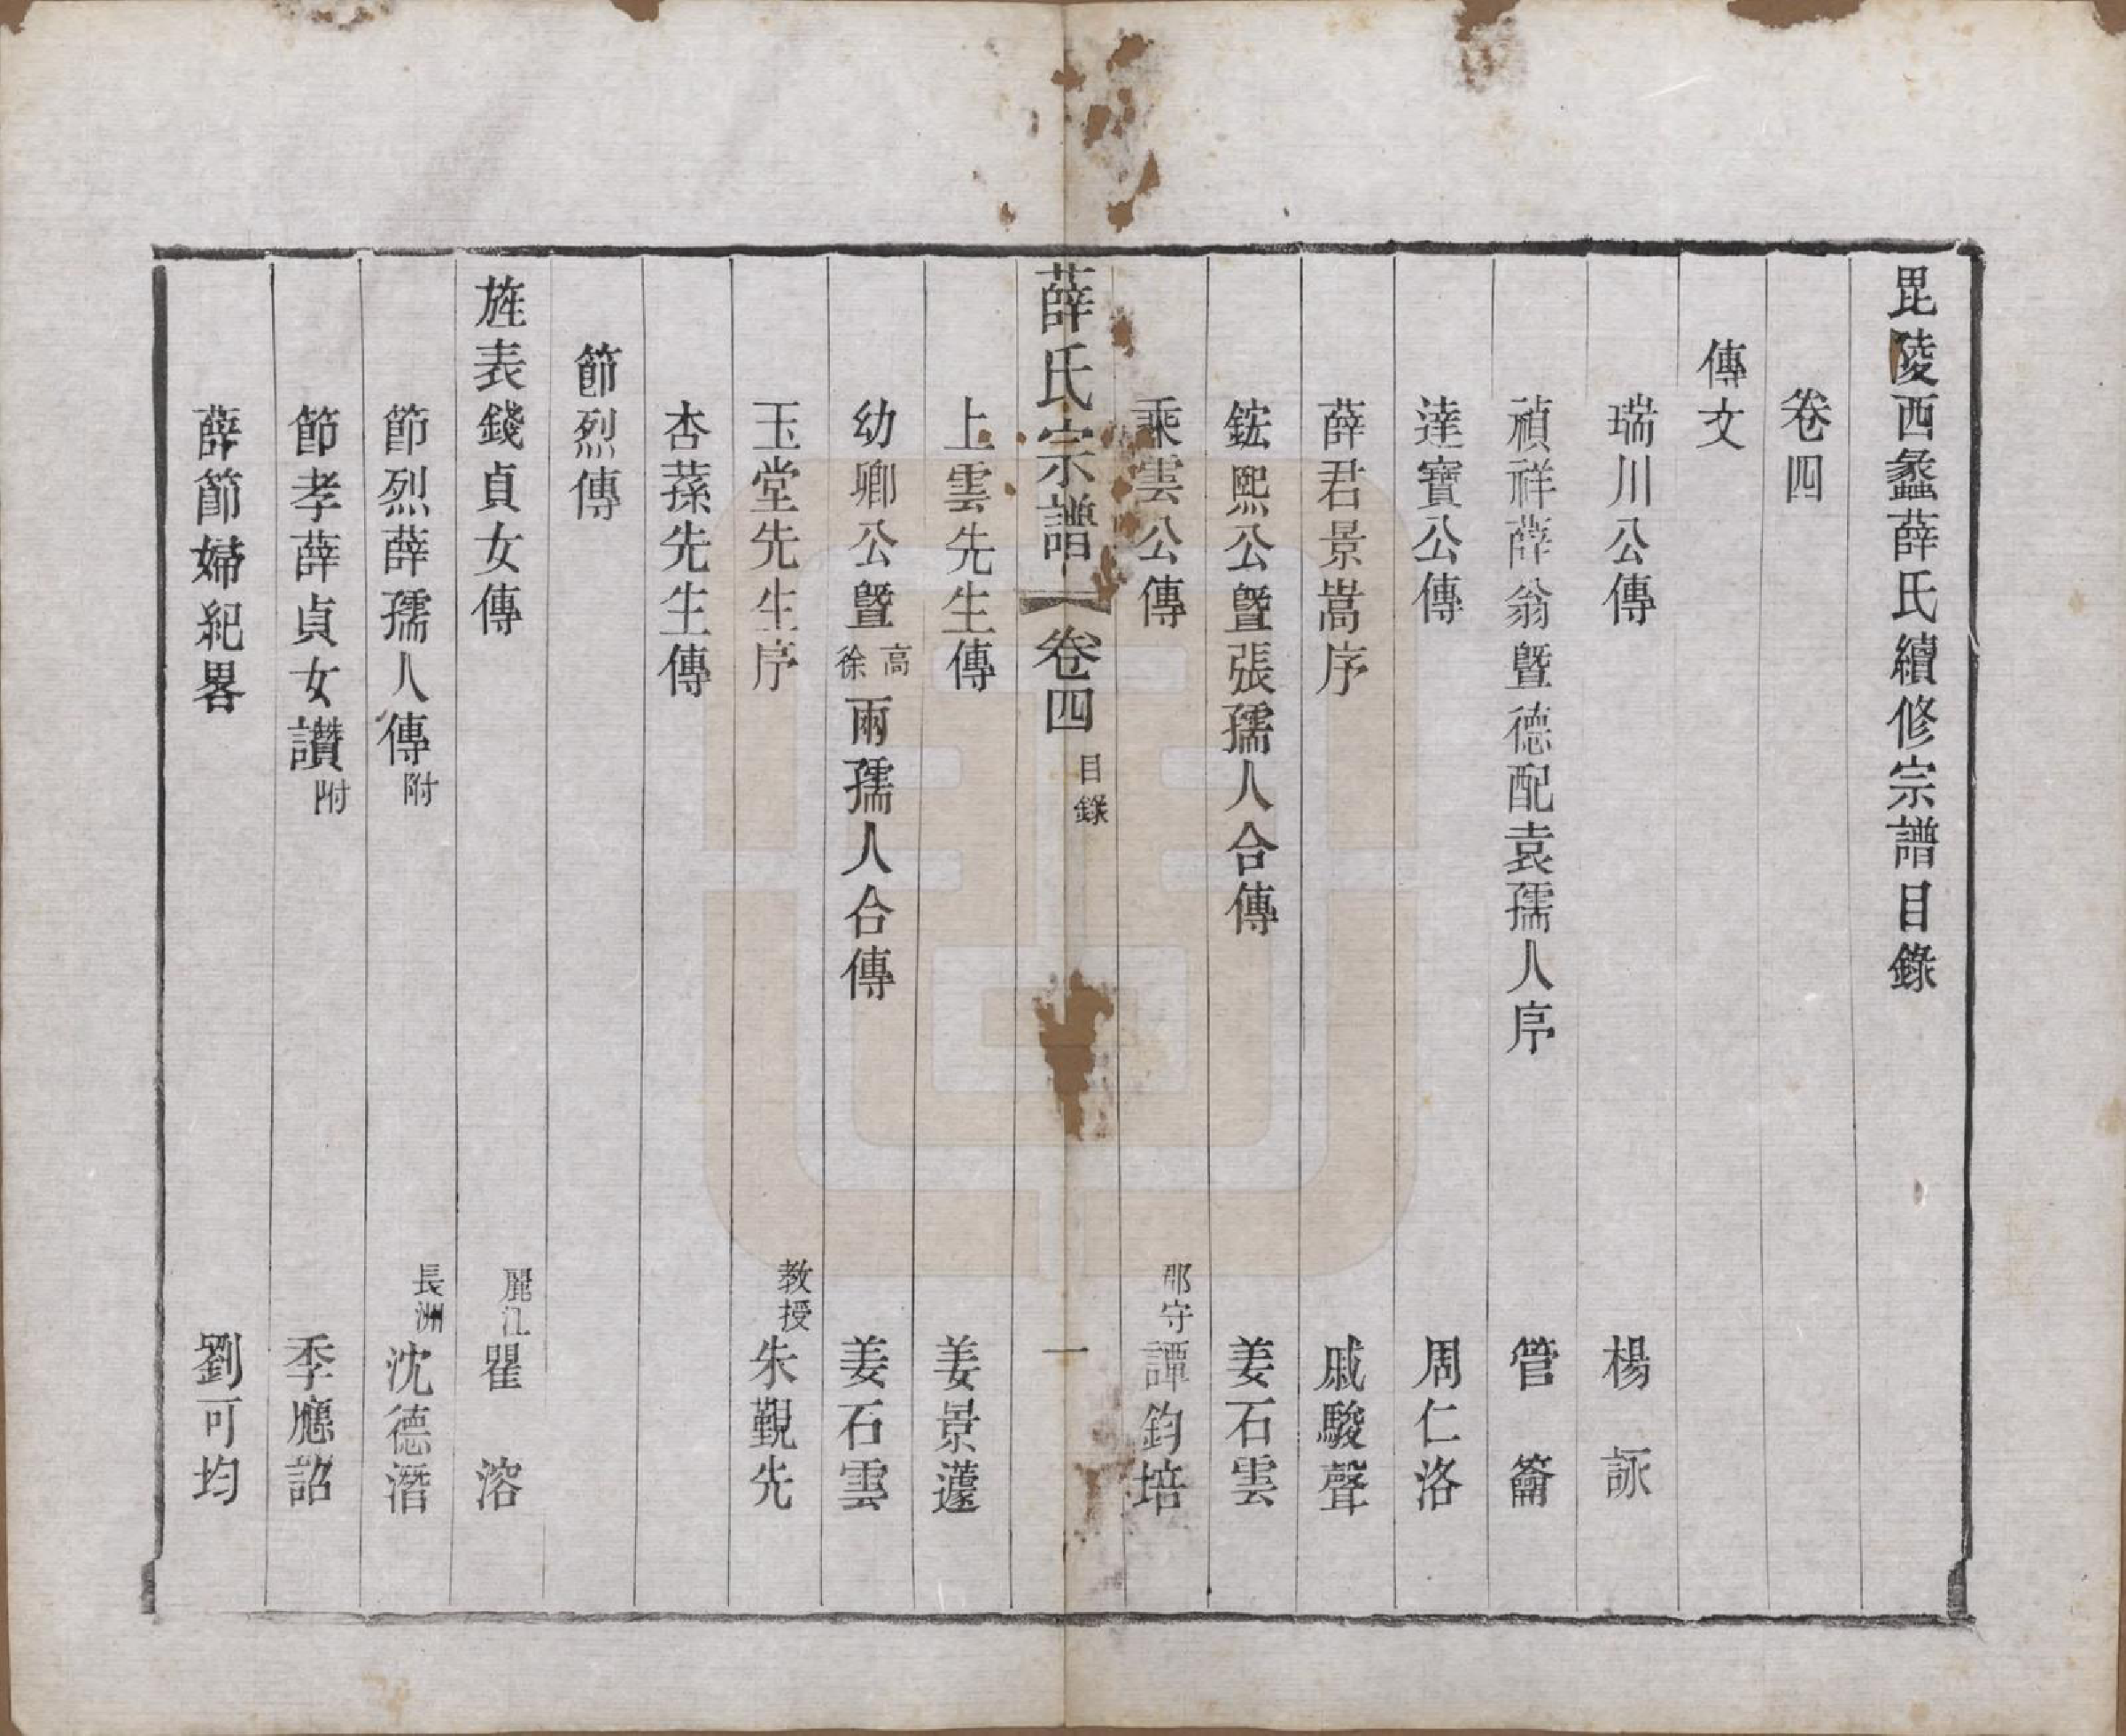 毘陵西蠡薛氏續修宗譜目錄
卷四
傳文
瑞川公傳 楊 詠
禎祥薛翁暨德配袁孺人序 管 籥
達寶公傳 周仁洛
薛君景嵩序 戚駿聲
鋐熙公暨張孺人合傳 姜石雲
乘雲公傳 郡守 譚鈞培
薛氏宗譜 卷四 目錄 一
上雲先生傳 姜景蘧
幼卿公暨高徐兩孺人合傳 姜石雲
玉堂先生序 教授 朱覲先
杏蓀先生傳
節烈傳
旌表錢貞女傳 麗江 瞿 溶
節烈薛孺人傳附 長洲 沈德潛
節孝薛貞女讚附 季應詔
薛節婦紀畧 劉可均